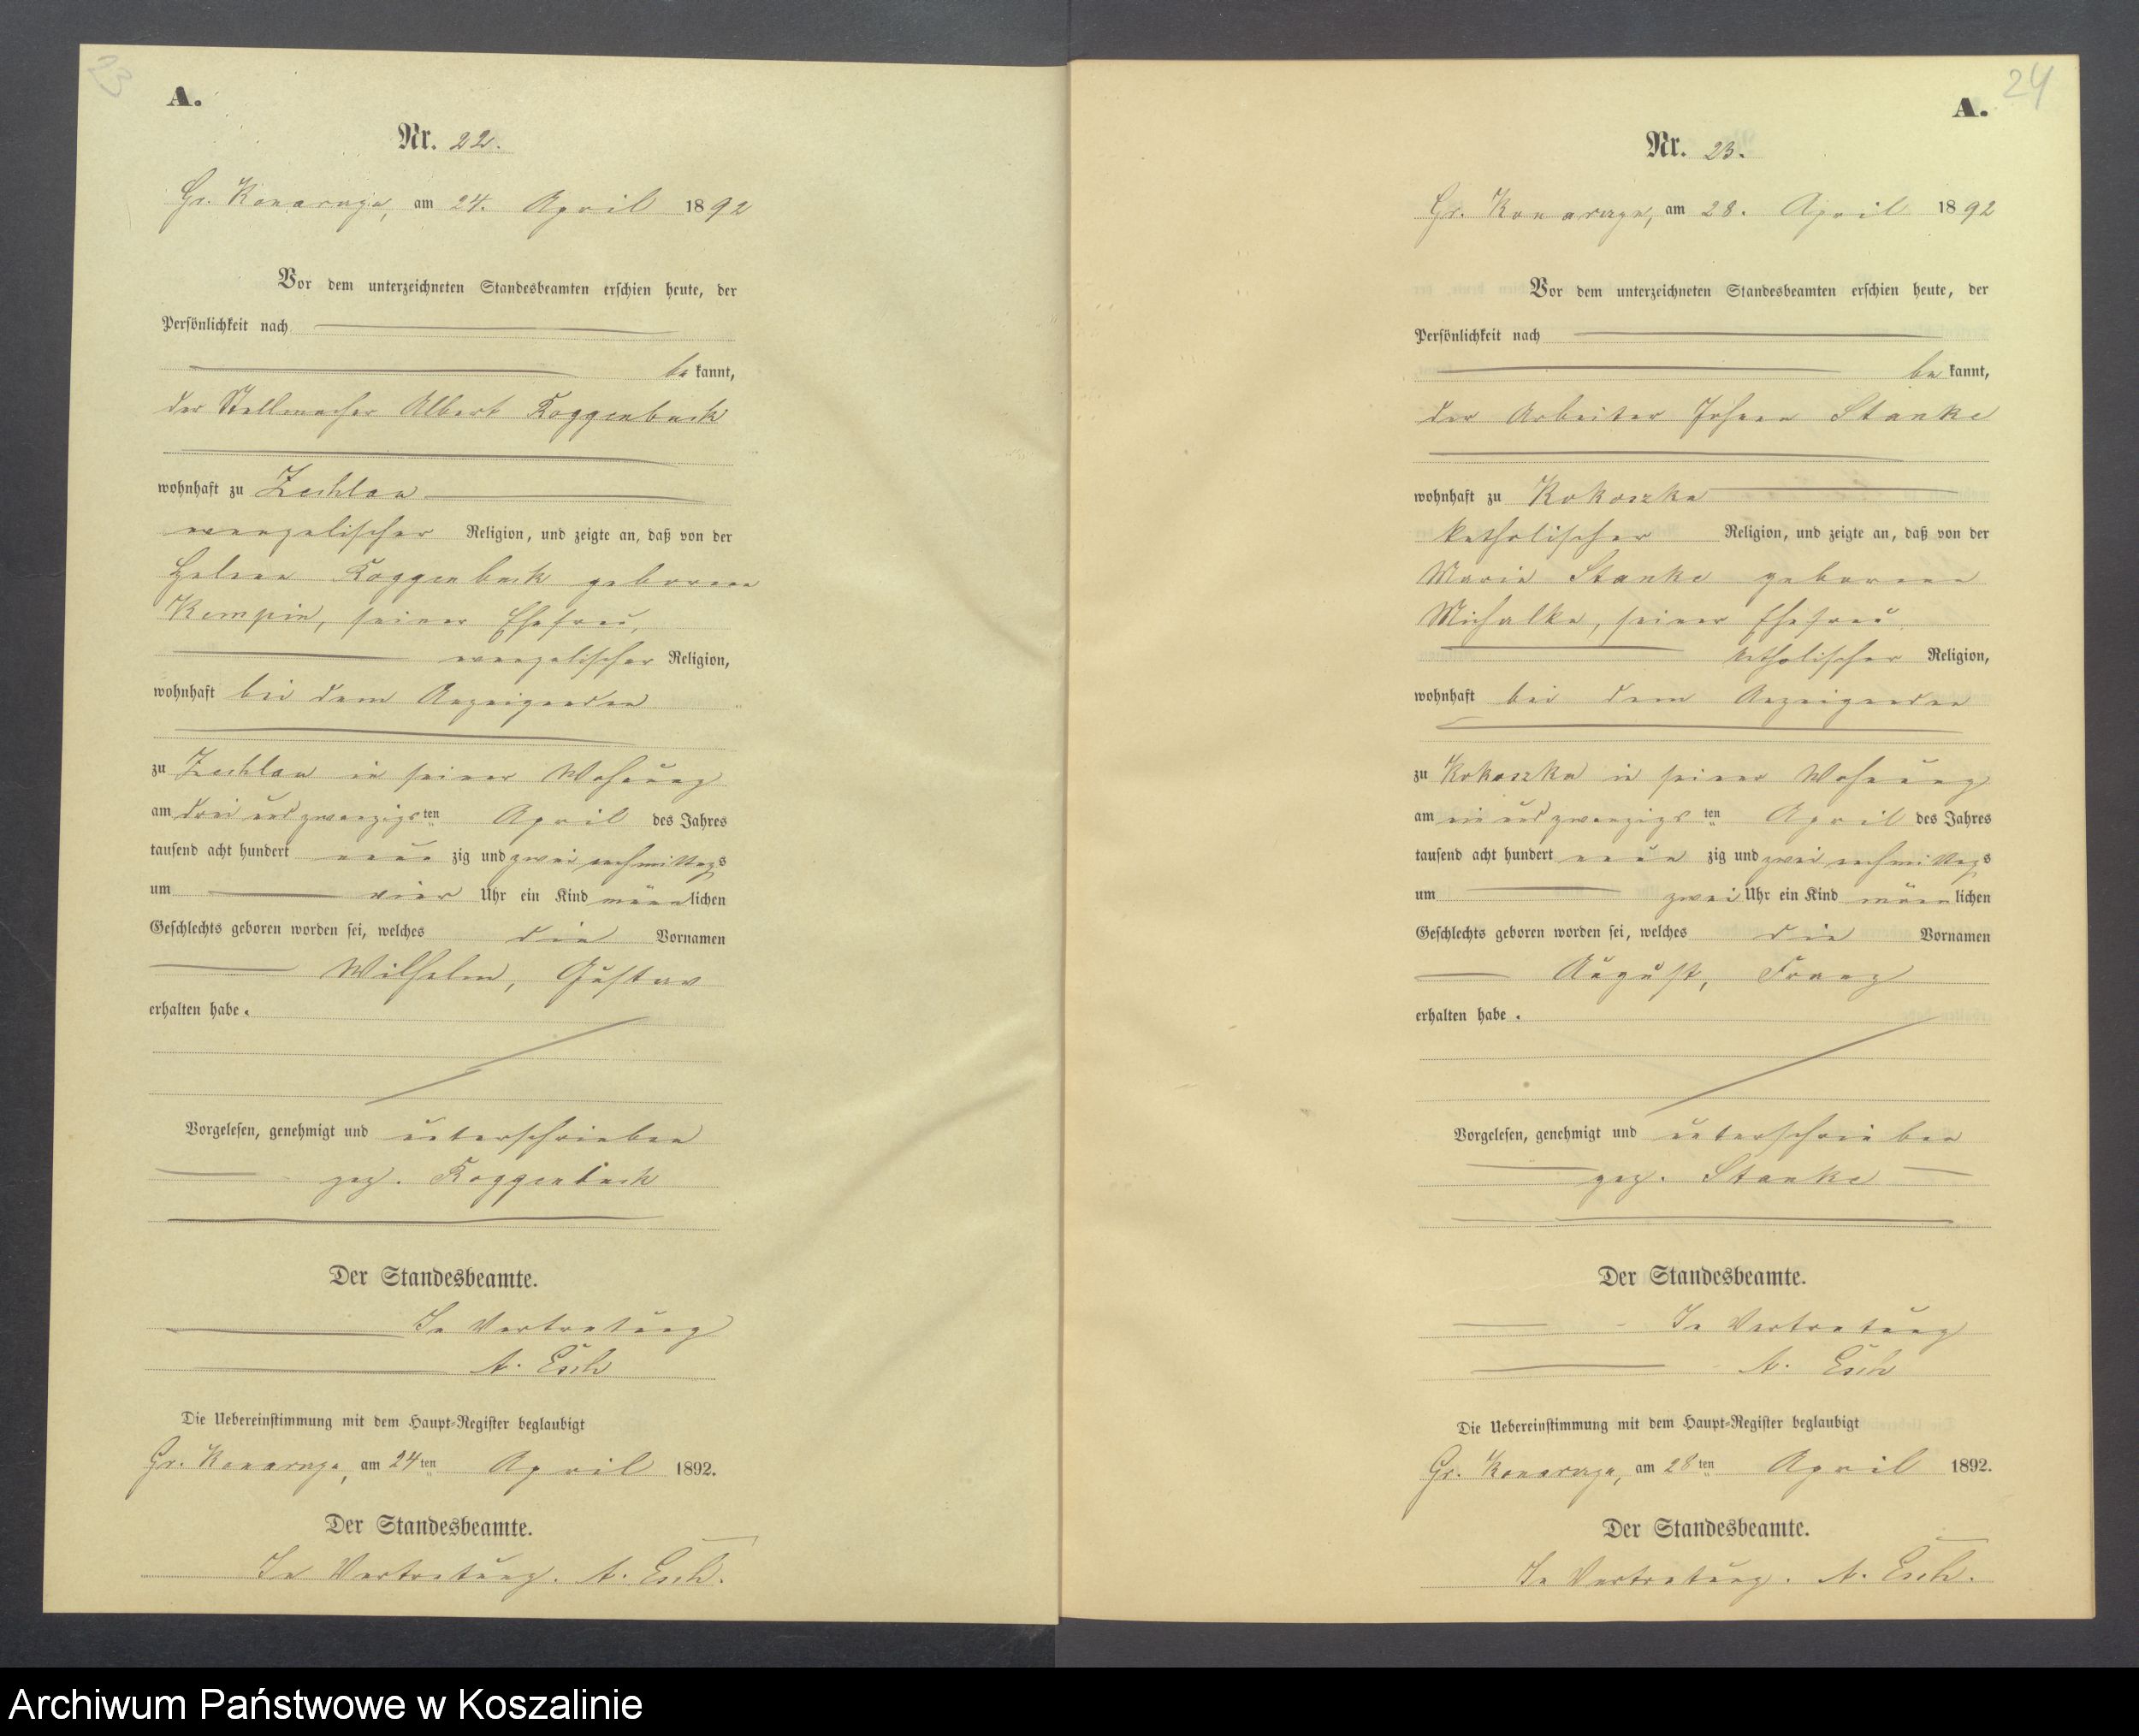 23
A.
Nr. 22.
Gr. Konarczyn, am 24. April 1892
Vor dem unterzeichneten Standesbeamten erschien heute, der
Persönlichkeit nach
be kannt,
der Stellmacher Albert Roggenbuck
wohnhaft zu Zechlau
evangelischer Religion, und zeigte an, daß von der
Helene Roggenbuck geborene
Kempin, seiner Ehefrau,
evangelischer Religion,
wohnhaft bei dem Anzeigenden
zu Zechlau in seiner Wohnung
am drei und zwanzigs ten April des Jahres
tausend acht hundert neun zig und zwei nachmittags
um vier Uhr ein Kind männlichen
Geschlechts geboren worden sei, welches die Vornamen
Wilhelm, Gustav
erhalten habe.
Vorgelesen, genehmigt und unterschrieben
gez. Roggenbuck
Der Standesbeamte.
In Vertretung
A. Esch
Die Uebereinstimmung mit dem Haupt-Register beglaubigt
Gr. Konarczyn, am 24 ten April 1892.
Der Standesbeamte.
In Vertretung. A. Esch.
24
A.
Nr. 23.
Gr. Konarczyn, am 28. April 1892
Vor dem unterzeichneten Standesbeamten erschien heute, der
Persönlichkeit nach
be kannt,
der Arbeiter Johann Stanke
wohnhaft zu Kokoszka
katholischer Religion, und zeigte an, daß von der
Maria Stanke geborene
Michalke, seiner Ehefrau
katholischer Religion,
wohnhaft bei dem Anzeigenden
zu Kokoszka in seiner Wohnung
am ein und zwanzigs ten April des Jahres
tausend acht hundert neun zig und zwei nachmittags
um zwei Uhr ein Kind männlichen
Geschlechts geboren worden sei, welches die Vornamen
August, Franz
erhalten habe.
Vorgelesen, genehmigt und unterschrieben
gez. Stanke
Der Standesbeamte.
In Vertretung
A. Esch
Die Uebereinstimmung mit dem Haupt-Register beglaubigt
Gr. Konarczyn, am 28 ten April 1892.
Der Standesbeamte.
In Vertretung. A. Esch.
Archiwum Państwowe w Koszalinie